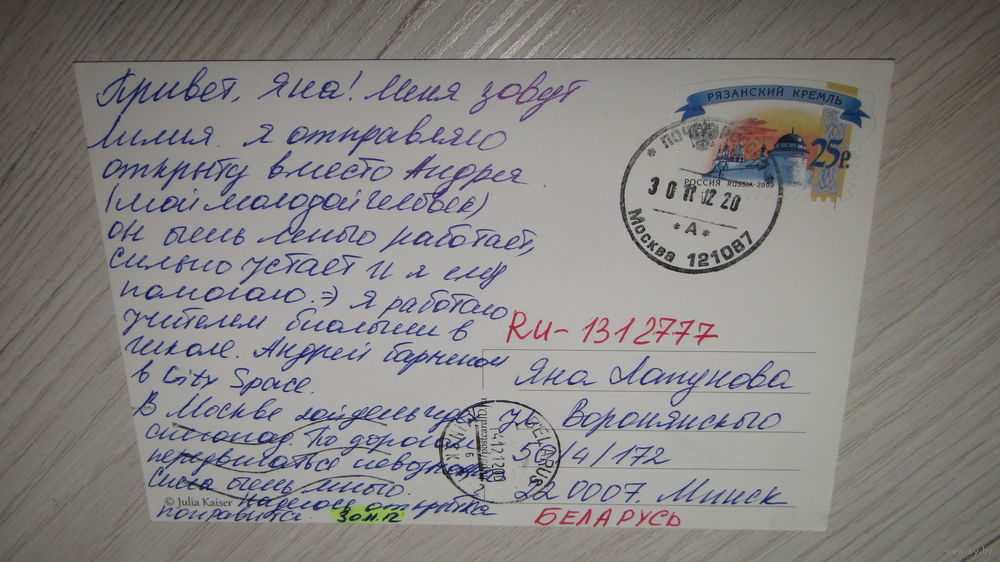 Привет, Яна! Меня зовут
Лилия. Я отправляю
открытку вместо Андрея
(мой молодой человек)
он очень много работает,
сильно устает и я ему
помогаю. =) Я работаю
учителем биологии в
школе. Андрей барменом
в City Space.
В Москве
снегопад. По дорогам
передвигаться невозможно
Снега очень много.
Надеюсь открытка
понравится. 30.11.12
© Julia Kaiser
РЯЗАНСКИЙ КРЕМЛЬ
25р.
РОССИЯ RUSSIA·2009
ПОЧТА РОССИИ
30 11 12 20
*А*
Москва 121087
RU-1312777
Яна Лапунова
ул. Воронянского
50/4/172
220007. Минск
БЕЛАРУСЬ
BELARUS
MINSK
www.ay.by